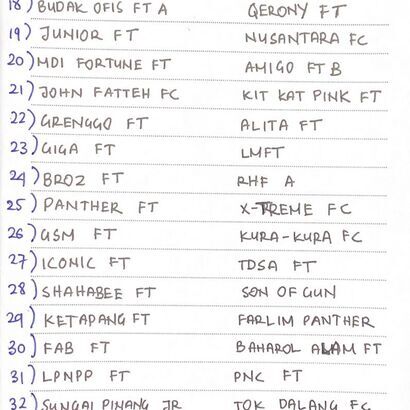 18) BUDAK OFIS FT A QERONY FT
19) JUNIOR FT NUSANTARA FC
20) MDI FORTUNE FT AMIGO FT B
21) JOHN FATTEH FC KIT KAT PINK FT
22) GRENGGO FT ALITA FT
23) GIGA FT LMFT
24) BROZ FT RHF A
25) PANTHER FT X-TREME FC
26) GSM FT KURA-KURA FC
27) ICONIC FT TDSA FT
28) SHAHABEE FT SON OF GUN
29) KETAPANG FT FARLIM PANTHER
30) FAB FT BAHAROL ALAM FT
31) LPNPP FT PNC FT
32) SUNGAI PINANG JR TOK DALANG FC